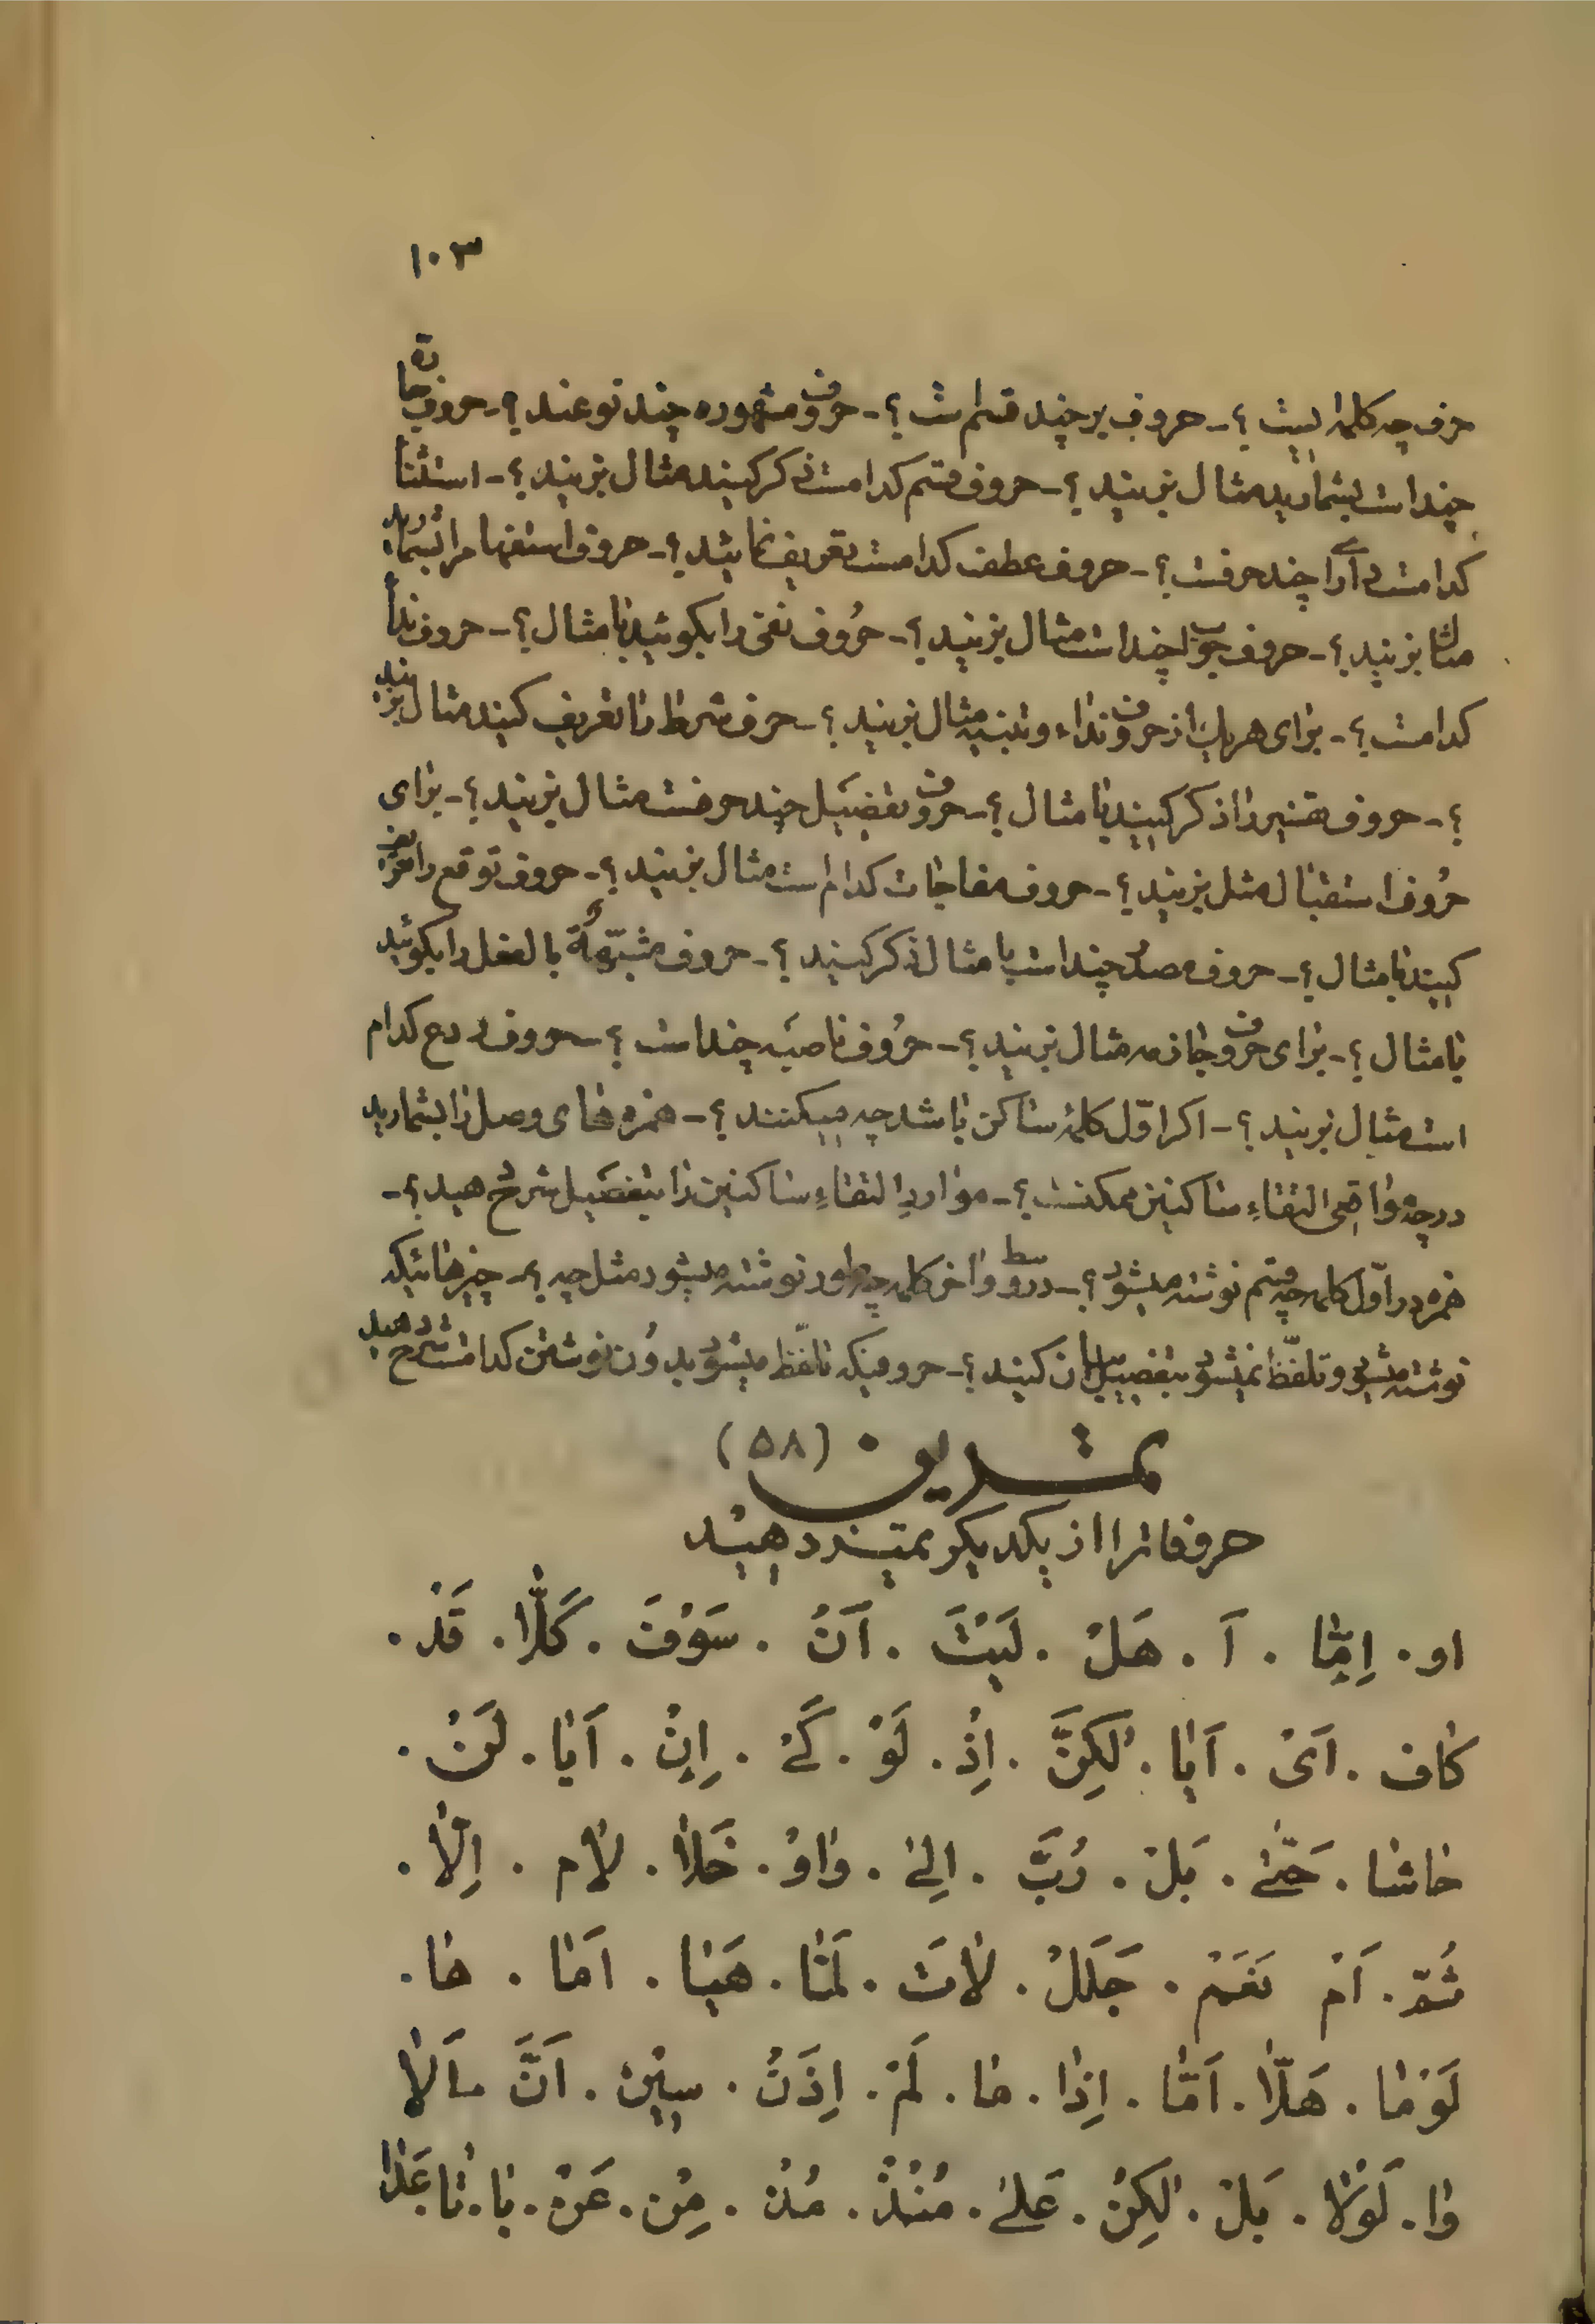 ١٠٣
حرف چه کلمه ایست ؟ - حروف بر چند قسم است ؟ - حروف مشهوره چند نوعند ؟ - حروف جاره
چند است بشمارید مثال بزنید ؟ - حروف قسم کدامست ذکر کنید مثال بزنید ؟ - استثنا
کدامست و آرا چند حرفست ؟ - حروف عطف کدامست تعریف نمائید ؟ - حروف استفهام را بشمارید
مثال بزنید ؟ - حروف جواب چند است مثال بزنید ؟ - حُروف نفی را بکوئید با مثال ؟ - حروف ندا
کدامست ؟ - برای هر یک از حروف نداء و تنبیه مثال بزنید ؟ - حرف شرط را تعریف کنید مثال بزنید
؟ - حروف تفسیر را ذکر کنید با مثال ؟ - حروف تفضیل چند حرفست مثال بزنید ؟ - برای
حُروف استقبال مثل بزنید ؟ - حروف مفاجات کدام است مثال بزنید ؟ - حروف توقع را تعریف
کنید با مثال ؟ - حروف مصدر چند است با مثال ذکر کنید ؟ - حروف مشبّهةٌ بالفعل را بکوئید
با مثال ؟ - برای حروف جازمه مثال بزنید ؟ - حُروف ناصبَه چند است ؟ - حروف ردع کدام
است مثال بزنید ؟ - اکر اوّل کلمهٔ ساکن باشد چه میکنند ؟ - همزه های وصل را بشمارید
در چه واقعی التقاءِ ساکنین ممکنست ؟ - مواردِ التقاءِ ساکنین را بتفصَیل شرح دهید ؟ -
همزه در اوّل کلمه چه قسم نوشته میشود ؟ - در وسط و اخر کلمه چطور نوشته میشود مثل چه ؟ - چیزهائیکه
نوشته میشود و تلفّظ نمیشود بتفصیل بیان کنید ؟ - حروفیکه تلفّظ میشود بدون نوشتن کدامست شرح دهید
تمـــرین ٠ (٥٨)
حرفها را از یکدیکر تمیـز دهیـد
او . اِمّا . اَ . هَلْ . لَیْتَ . اَنْ . سَوْفَ . کَلّا . قَدْ .
کاف . اَیْ . اَیا . لٰکِنَّ . اِذْ . لَوْ . کَےْ . اِنْ . اَیا . لَنْ .
حاشا . حَتّےٰ . بَلْ . رُبَّ . اِلےٰ . واوْ . خَلا . لام . اِلّا .
ثُمَّ . اَمْ نَعَمْ . جَلَلْ . لاتَ . لَمّا . هَیا . اَما . ها .
لَوْما . هَلّا . اَمّا . اِذا . ما . لَمْ . اِذَنْ . سیٖنْ . اَنَّ . اَلا
وا . لَوْلا . بَلْ . لٰکِنْ . عَلےٰ . مُنْذْ . مُذْ . مِنْ . عَنْ . با . تا . عَدا